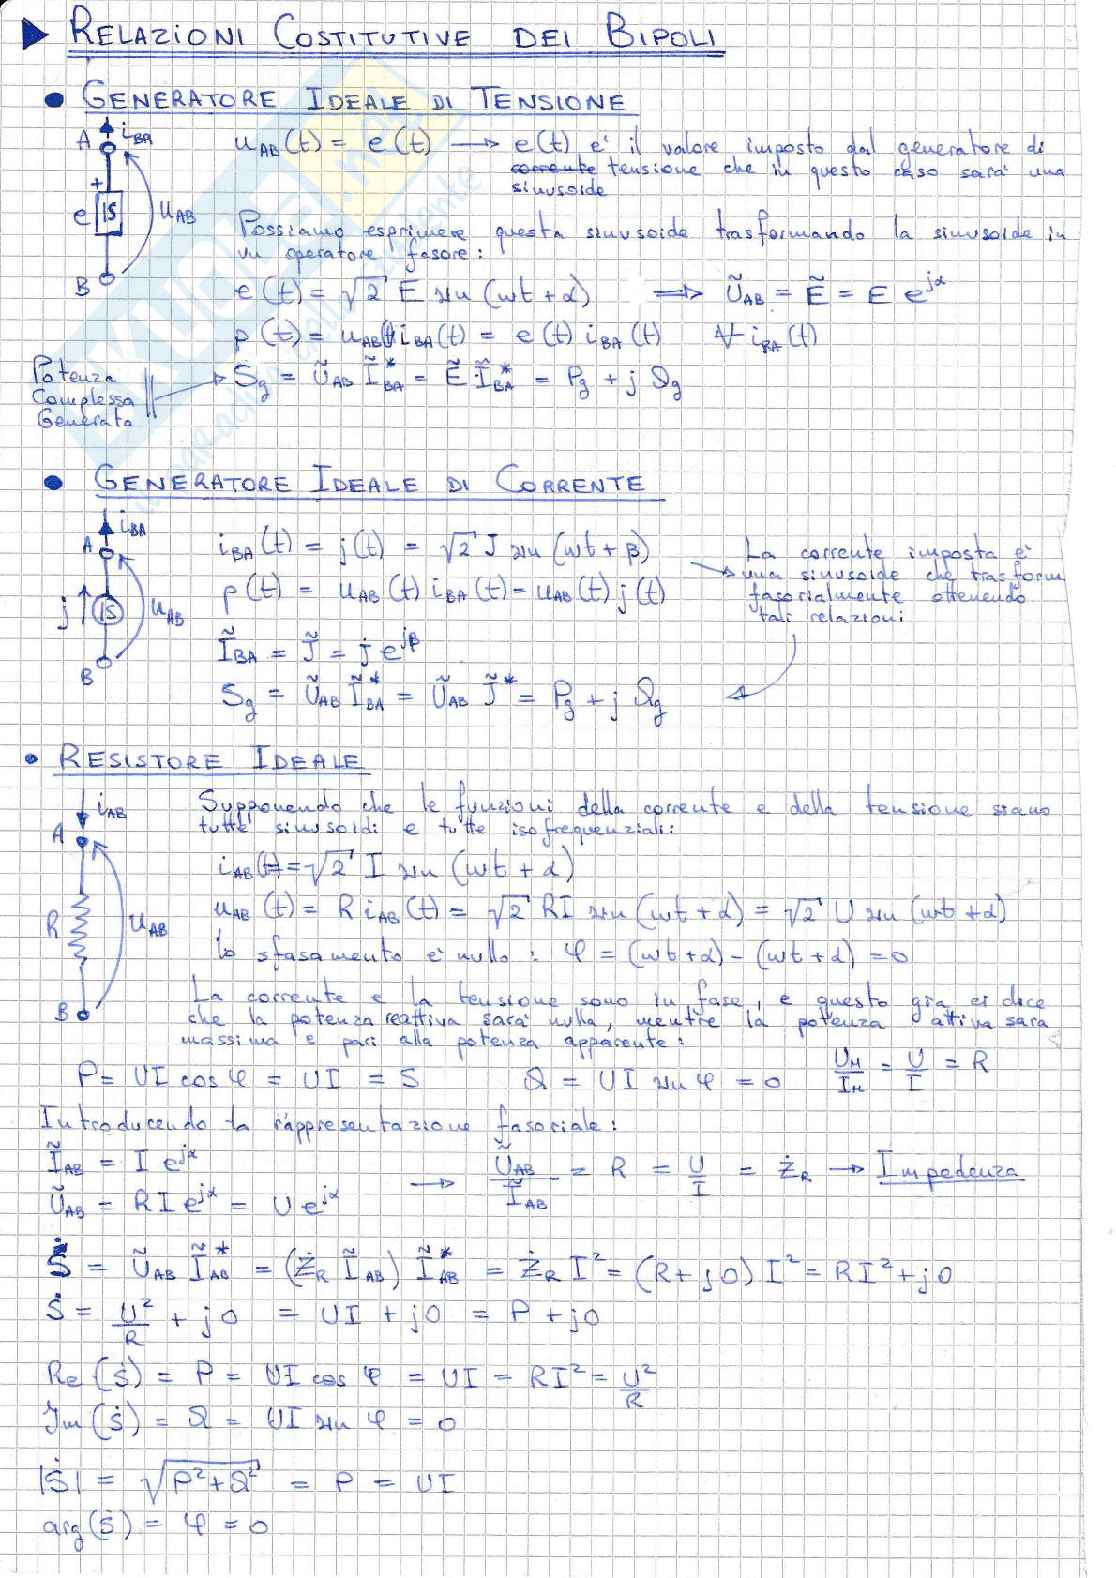 ▶ RELAZIONI COSTITUTIVE DEI BIPOLI
• GENERATORE IDEALE DI TENSIONE
A i_BA
+
e IS u_AB
B
u_AB(t) = e(t) → e(t) e' il valore imposto dal generatore di
corrente tensione che in questo caso sara' una
sinusoide
Possiamo esprimere questa sinusoide trasformando la sinusoide in
un operatore fasore:
e(t) = √2 E sen (ωt + α) ⇒ Ũ_AB = Ẽ = E e^jα
p(t) = u_AB(t) i_BA(t) = e(t) i_BA(t) ∀ i_BA(t)
Potenza
Complessa
Generata
Ṡg = Ũ_AB Ĩ*_BA = Ẽ Ĩ*_BA = Pg + j Qg
• GENERATORE IDEALE DI CORRENTE
A i_BA
j IS u_AB
B
i_BA(t) = j(t) = √2 J sen (ωt + β)
p(t) = u_AB(t) i_BA(t) = u_AB(t) j(t)
Ĩ_BA = J̃ = j e^jβ
Sg = Ũ_AB Ĩ*_BA = Ũ_AB J̃* = Pg + j Qg
La corrente imposta e'
una sinusoide che trasform
fasorialmente ottenendo
tali relazioni
• RESISTORE IDEALE
i_AB
A
R u_AB
B
Supponendo che le funzioni della corrente e della tensione siano
tutte sinusoidi e tutte isofrequenziali:
i_AB(t) = √2 I sen (ωt + α)
u_AB(t) = R i_AB(t) = √2 RI sen (ωt + α) = √2 U sen (ωt + α)
lo sfasamento e' nullo: φ = (ωt + α) - (ωt + α) = 0
La corrente e la tensione sono in fase, e questo gia ci dice
che la potenza reattiva sara' nulla, mentre la potenza attiva sara
massima e pari alla potenza apparente:
P = UI cos φ = UI = S Q = UI sen φ = 0 U_M/I_M = U/I = R
Introducendo la rappresentazione fasoriale:
Ĩ_AB = I e^jα
Ũ_AB = R I e^jα = U e^jα
→ Ũ_AB/Ĩ_AB = R = U/I = Ż_R → Impedenza
Ṡ = Ũ_AB Ĩ*_AB = (Ż_R Ĩ_AB) Ĩ*_AB = Ż_R I² = (R + j0) I² = RI² + j0
Ṡ = U²/R + j0 = UI + j0 = P + j0
Re(Ṡ) = P = UI cos φ = UI = RI² = U²/R
Im(Ṡ) = Q = UI sen φ = 0
|Ṡ| = √(P² + Q²) = P = UI
arg(Ṡ) = φ = 0